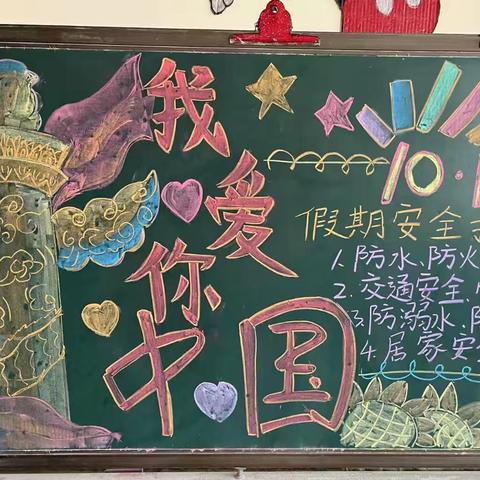 我
爱
你
中国
10·1
假期安全
1.防水、防火
2.交通安全、
3.防溺水、防
4.居家安全